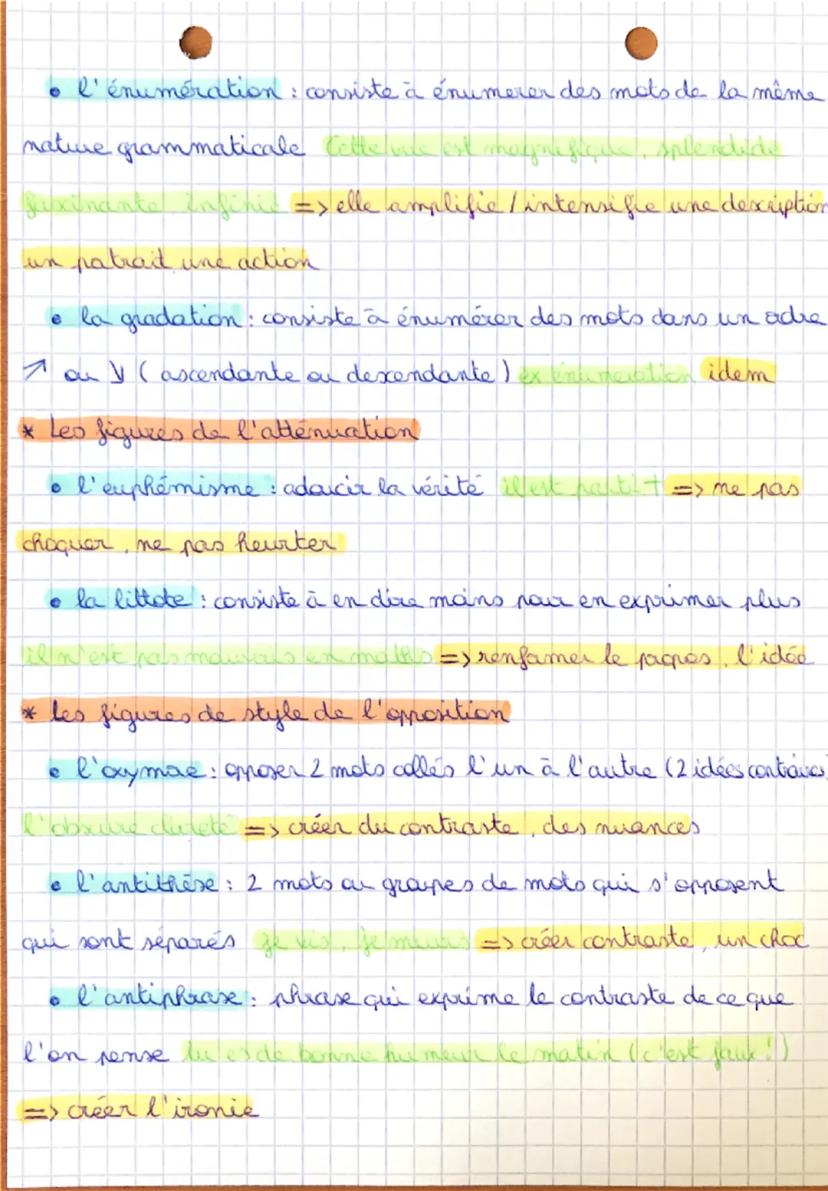 • l'énumération : consiste à énumerer des mots de la même
nature grammaticale Cette vue est magnifique, splendide
fascinante, infinie => elle amplifie / intensifie une description
un patrait une action
• la gradation : consiste à énumérer des mots dans un ordre
↗ ou ↘ ( ascendante ou descendante ) ex énumération idem
* Les figures de l'atténuation
• l'euphémisme : adoucir la vérité il est parti † => ne pas
choquer, ne pas heurter
• la littote : consiste à en dire moins pour en exprimer plus
il n'est pas mauvais en maths => renformer le propos, l'idée
* Les figures de style de l'opposition
• l'oxymore : opposer 2 mots collés l'un à l'autre (2 idées contraires)
l'obscure clareté => créer du contraste, des nuances
• l'antithèse : 2 mots ou groupes de mots qui s'opposent
qui sont séparés je vis, je meurs => créer contraste, un choc
• l'antiphrase : phrase qui exprime le contraste de ce que
l'on pense tu es de bonne humeur le matin (c'est faux !)
=> créer l'ironie